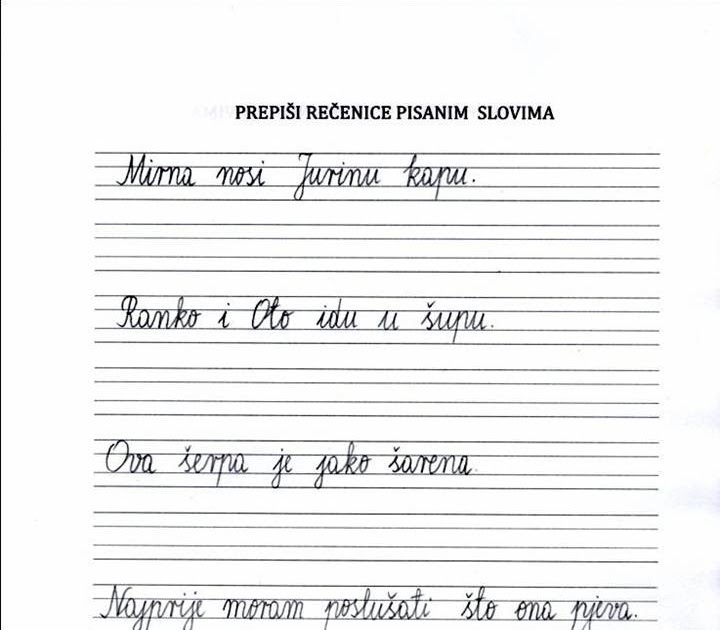 PREPIŠI REČENICE PISANIM SLOVIMA
Mirna nosi Jurinu kapu.
Ranko i Oto idu u šupu.
Ova šerpa je jako šarena.
Najprije moram poslušati što ona pjeva.